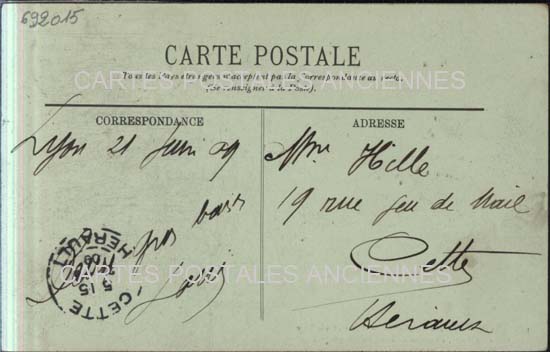 692015
CARTE POSTALE
Tous les pays étrangers n'acceptent pas la Correspondance au recto.
(Se renseigner à la Poste).
CARTES POSTALES ANCIENNES
CORRESPONDANCE
ADRESSE
Lyon 21 Juin 09
Mme Hille
19 rue Jeu de Mail
Cette
Hérault
gros
CARTES POSTALES ANCIENNES
CETTE
HERAULT
5 15
09